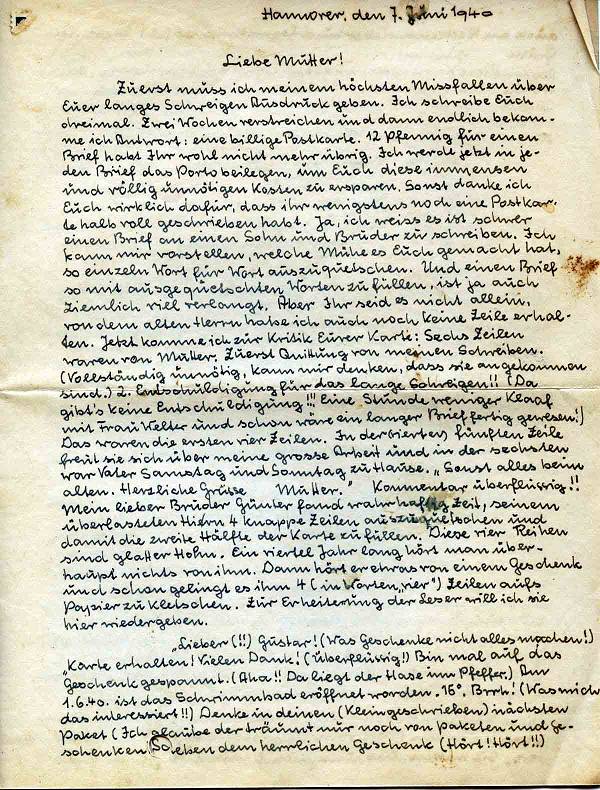 Hannover, den 7. Juni 1940
Liebe Mutter!
Zuerst muss ich meinem höchsten Missfallen über
Euer langes Schweigen Ausdruck geben. Ich schreibe Euch
dreimal. Zwei Wochen verstreichen und dann endlich bekom-
me ich Antwort: eine billige Postkarte. 12 Pfennig für einen
Brief habt Ihr wohl nicht mehr übrig. Ich werde jetzt in je-
den Brief das Porto beilegen, um Euch diese immensen
und völlig unnötigen Kosten zu ersparen. Sonst danke ich
Euch wirklich dafür, dass ihr wenigstens noch eine Postkar-
te halb voll geschrieben habt. Ja, ich weiss es ist schwer
einen Brief an einen Sohn und Bruder zu schreiben. Ich
kann mir vorstellen, welche Mühe es Euch gemacht hat,
so einzeln Wort für Wort auszuquetschen. Und einen Brief
so mit ausgequetschten Worten zu füllen, ist ja auch
ziemlich viel verlangt. Aber Ihr seid es nicht allein,
von dem alten Herrn habe ich auch noch keine Zeile erhal-
ten. Jetzt komme ich zur Kritik Eurer Karte: Sechs Zeilen
waren von Mutter. Zuerst Quittung von meinen Schreiben.
(Vollständig unnötig, kann mir denken, dass sie angekommen
sind.) 2. Entschuldigung für das lange Schreigen!! (Da
gibt's keine Entschuldigung!!! Eine Stunde weniger Klaaf
mit Frau Welter und schon wäre ein langer Brief fertig gewesen!)
Das waren die ersten vier Zeilen. In der (vierten) fünften Zeile
freut sie sich über meine grosse Arbeit und in der sechsten
war Vater Samstag und Sonntag zu Hause. „Sonst alles beim
alten. Herzliche Grüsse Mutter." Kommentar überflüssig!!
Mein lieber Bruder Günter fand wahrhaftig Zeit, seinem
überlasteten Hirn 4 knappe Zeilen auszuquetschen und
damit die zweite Hälfte der Karte zu füllen. Diese vier Reihen
sind glatter Hohn. Ein viertel Jahr lang hört man über-
haupt nichts von ihm. Dann hört er etwas von einem Geschenk
und schon gelingt es ihm 4 (in Worten „vier") Zeilen aufs
Papier zu kletschen. Zur Erheiterung der Leser will ich sie
hier wiedergeben.
„Lieber (!!) Gustav! (Was Geschenke nicht alles machen!)
„Karte erhalten! Vielen Dank! (überflüssig!) Bin mal auf das
Geschenk gespannt. (Aha!! Da liegt der Hase im Pfeffer.) Am
1.6.40. ist das Schwimmbad eröffnet worden. 16°. Brrh! (Was mich
das interessiert!!) Denke in deinen (Kleingeschrieben) nächsten
Paket (Ich glaube der träumt nur noch von Paketen und Ge-
schenken) neben dem herrlichen Geschenk (Hört! Hört!!)